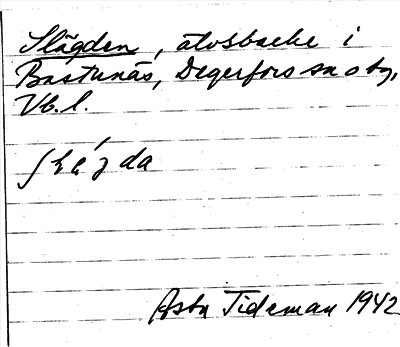 Slägden, älvsbacke i
Bastunäs, Degerfors sn o tg,
Vb. l.
Asta Tideman 1942